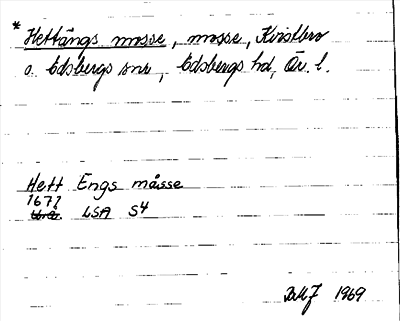 * Hettängs mosse, mosse, Kvistbro
o. Edsbergs snr, Edsbergs hd, Ör. l.
Hett Engs måsse
1671
LSA S4
BMJ 1969